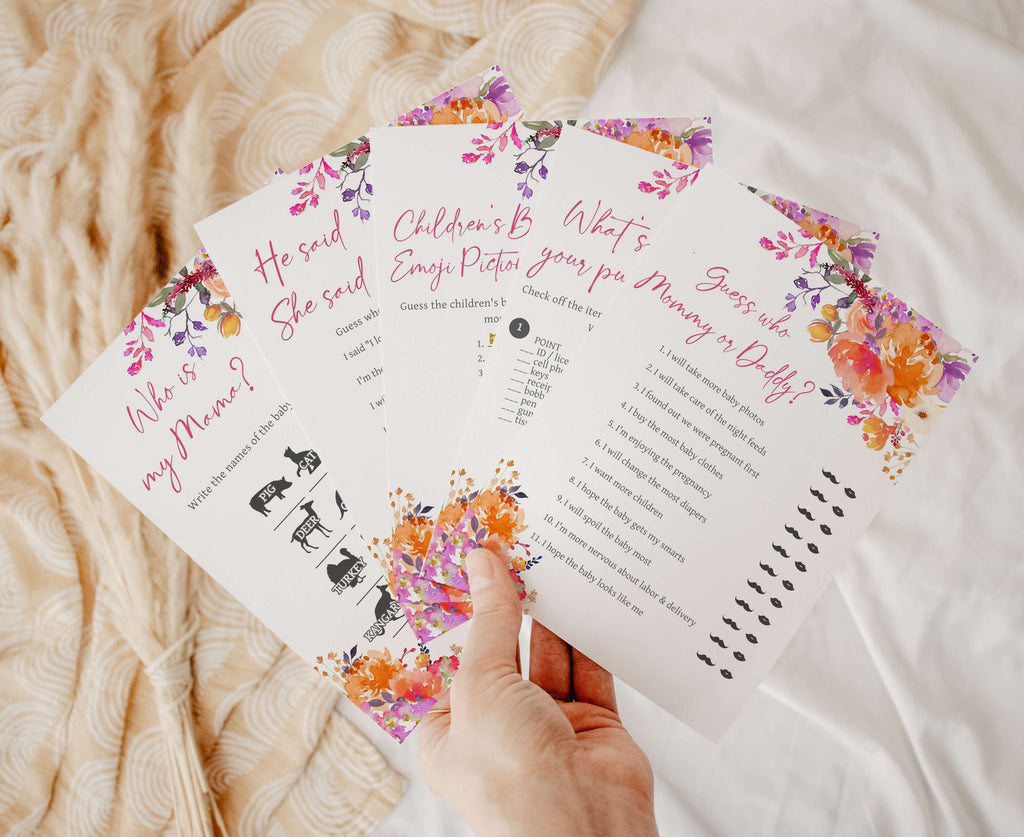 Who is
my Mama?
Write the names of the baby
CAT
PIG
DEER
TURKEY
KANGAR
He said
She said
Guess who
I said "I lo
I'm the
I wi
Children's B
Emoji Pictio
Guess the children's b
mos
1.
2.
3
What's
your pu
Check off the iter
1
POINT
ID / lice
cell pho
keys
receip
bobb
pen
gun
tiss
Guess who
Mommy or Daddy?
1. I will take more baby photos
2. I will take care of the night feeds
3. I found out we were pregnant first
4. I buy the most baby clothes
5. I'm enjoying the pregnancy
6. I will change the most diapers
7. I want more children
8. I hope the baby gets my smarts
9. I will spoil the baby most
10. I'm more nervous about labor & delivery
11. I hope the baby looks like me